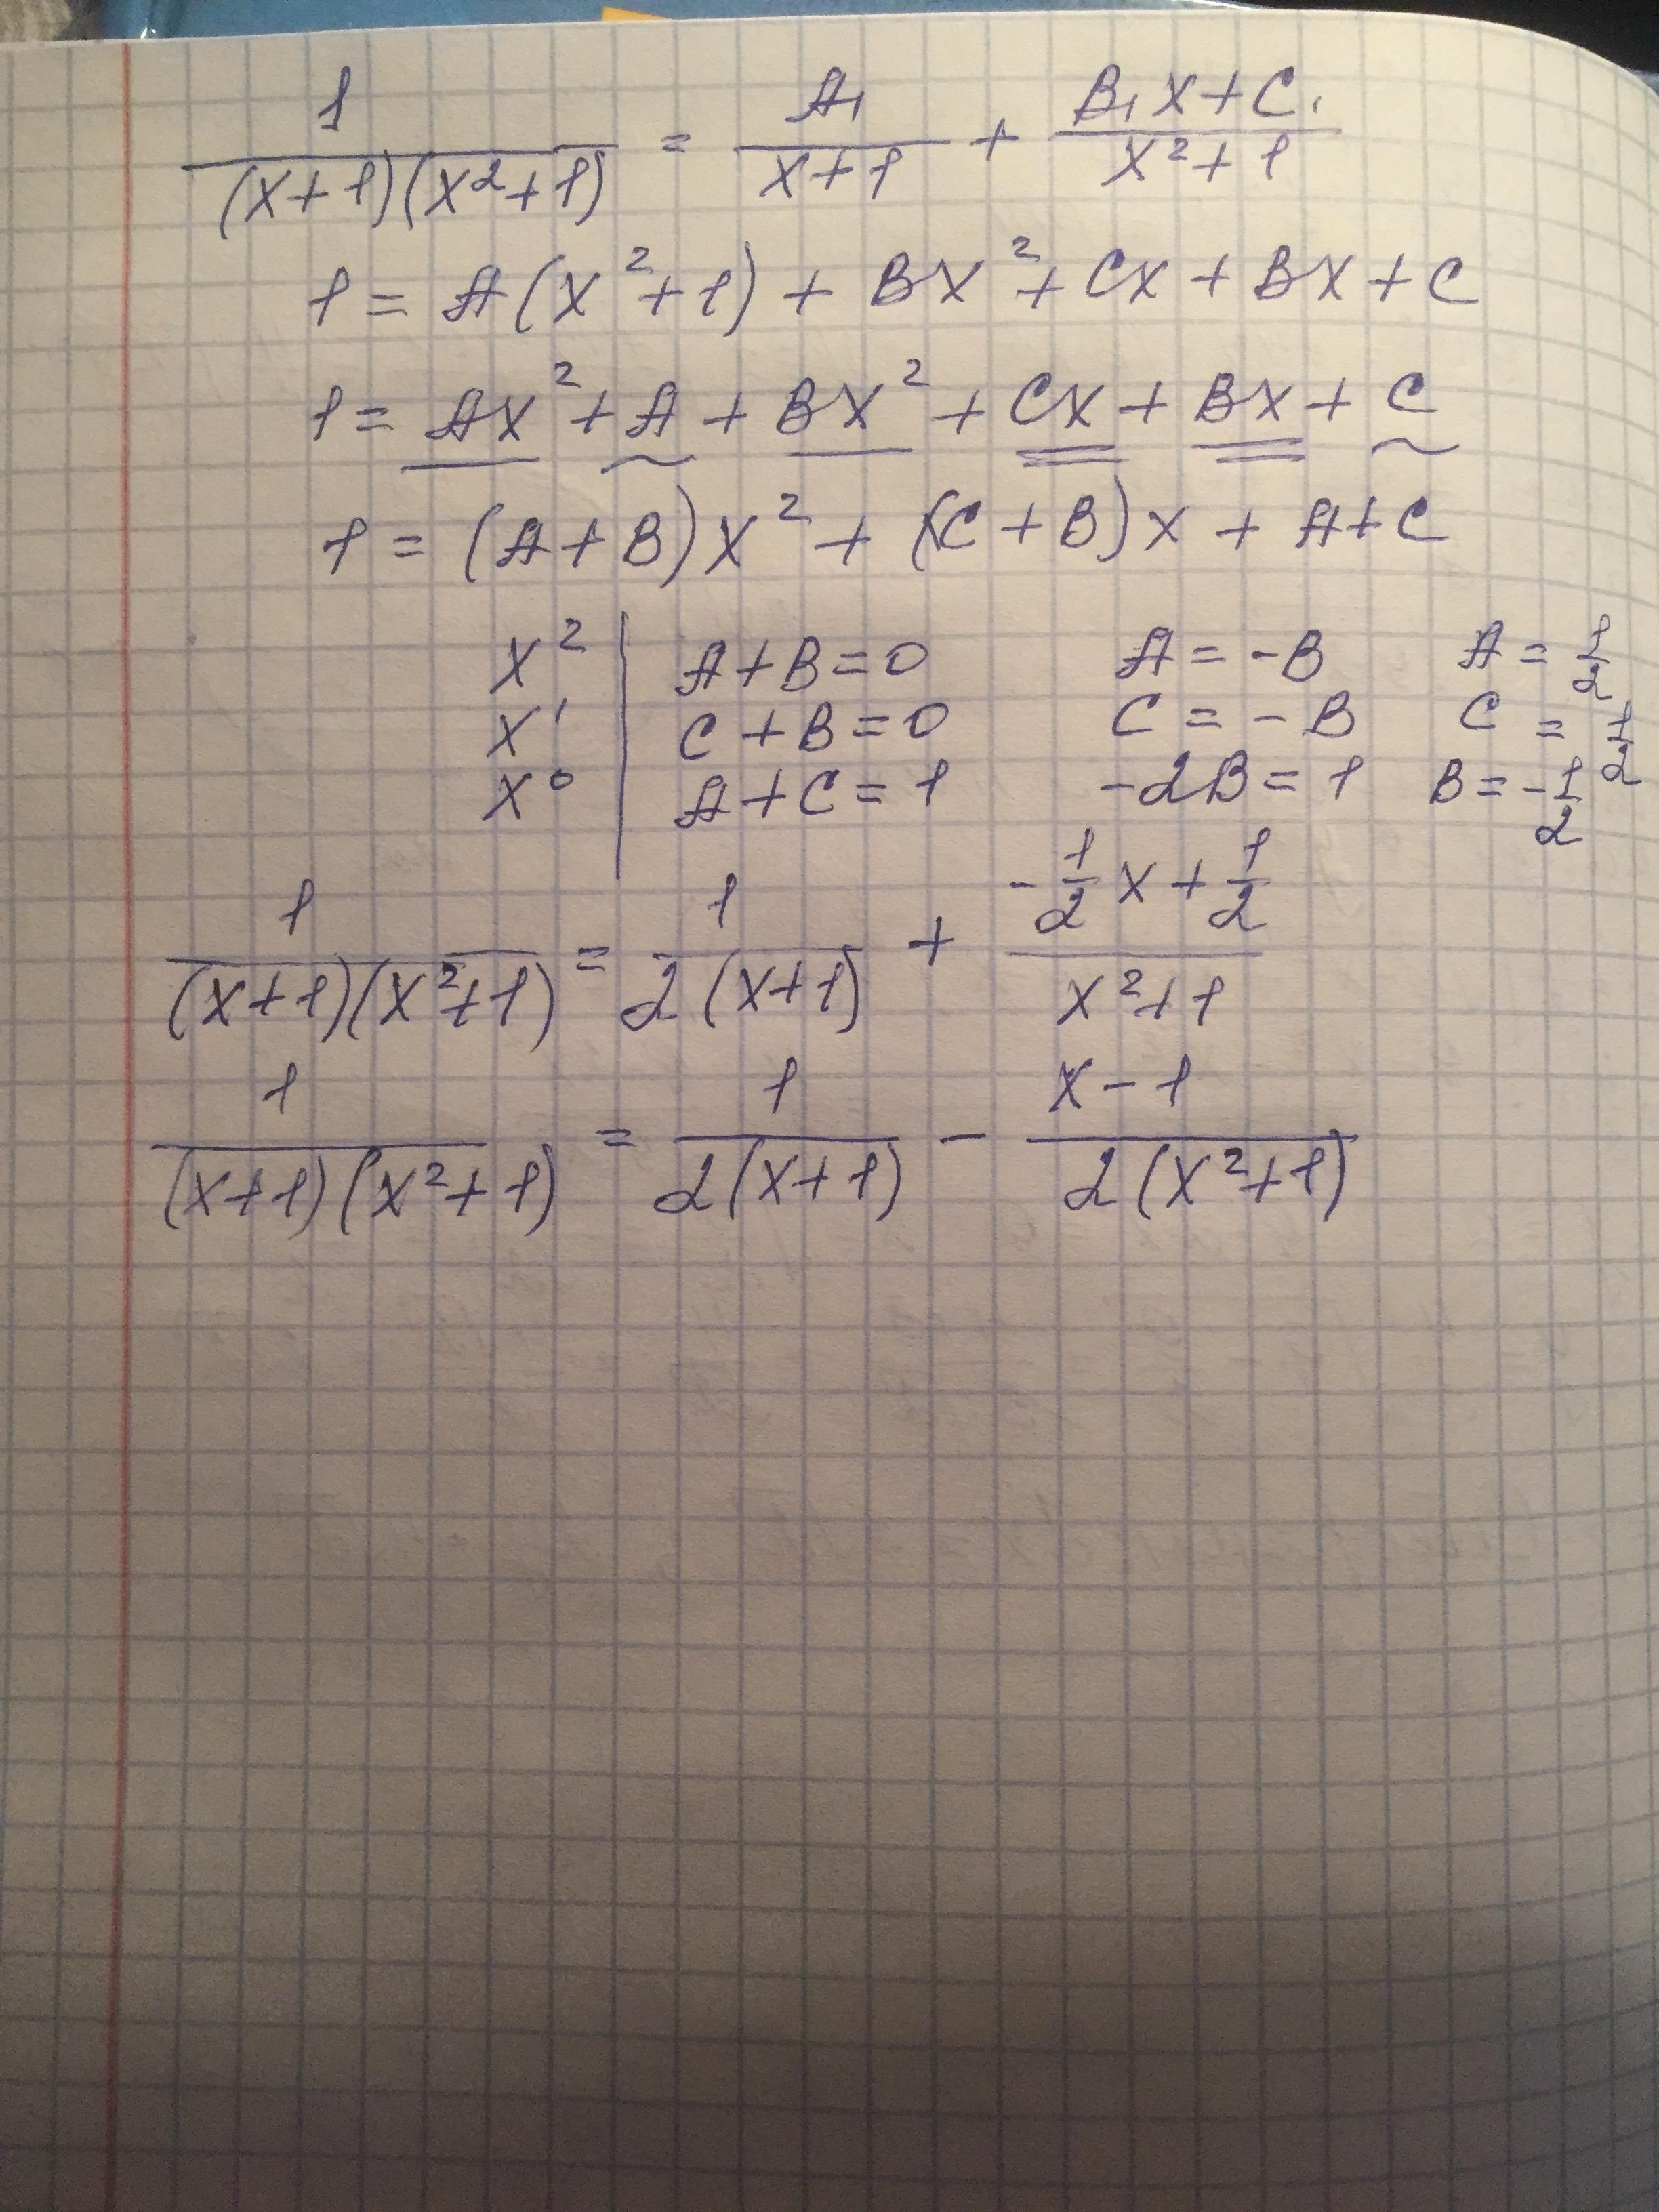 1/((x+1)(x²+1)) = A₁/(x+1) + (B₁x+C₁)/(x²+1)
1 = A(x²+1) + Bx² + Cx + Bx + C
1 = Ax² + A + Bx² + Cx + Bx + C
1 = (A+B)x² + (C+B)x + A+C
x² | A+B=0 A = -B A = 1/2
x¹ | C+B=0 C = -B C = 1/2
x⁰ | A+C=1 -2B=1 B = -1/2
1/((x+1)(x²+1)) = 1/(2(x+1)) + (-1/2 x + 1/2)/(x²+1)
1/((x+1)(x²+1)) = 1/(2(x+1)) - (x-1)/(2(x²+1))